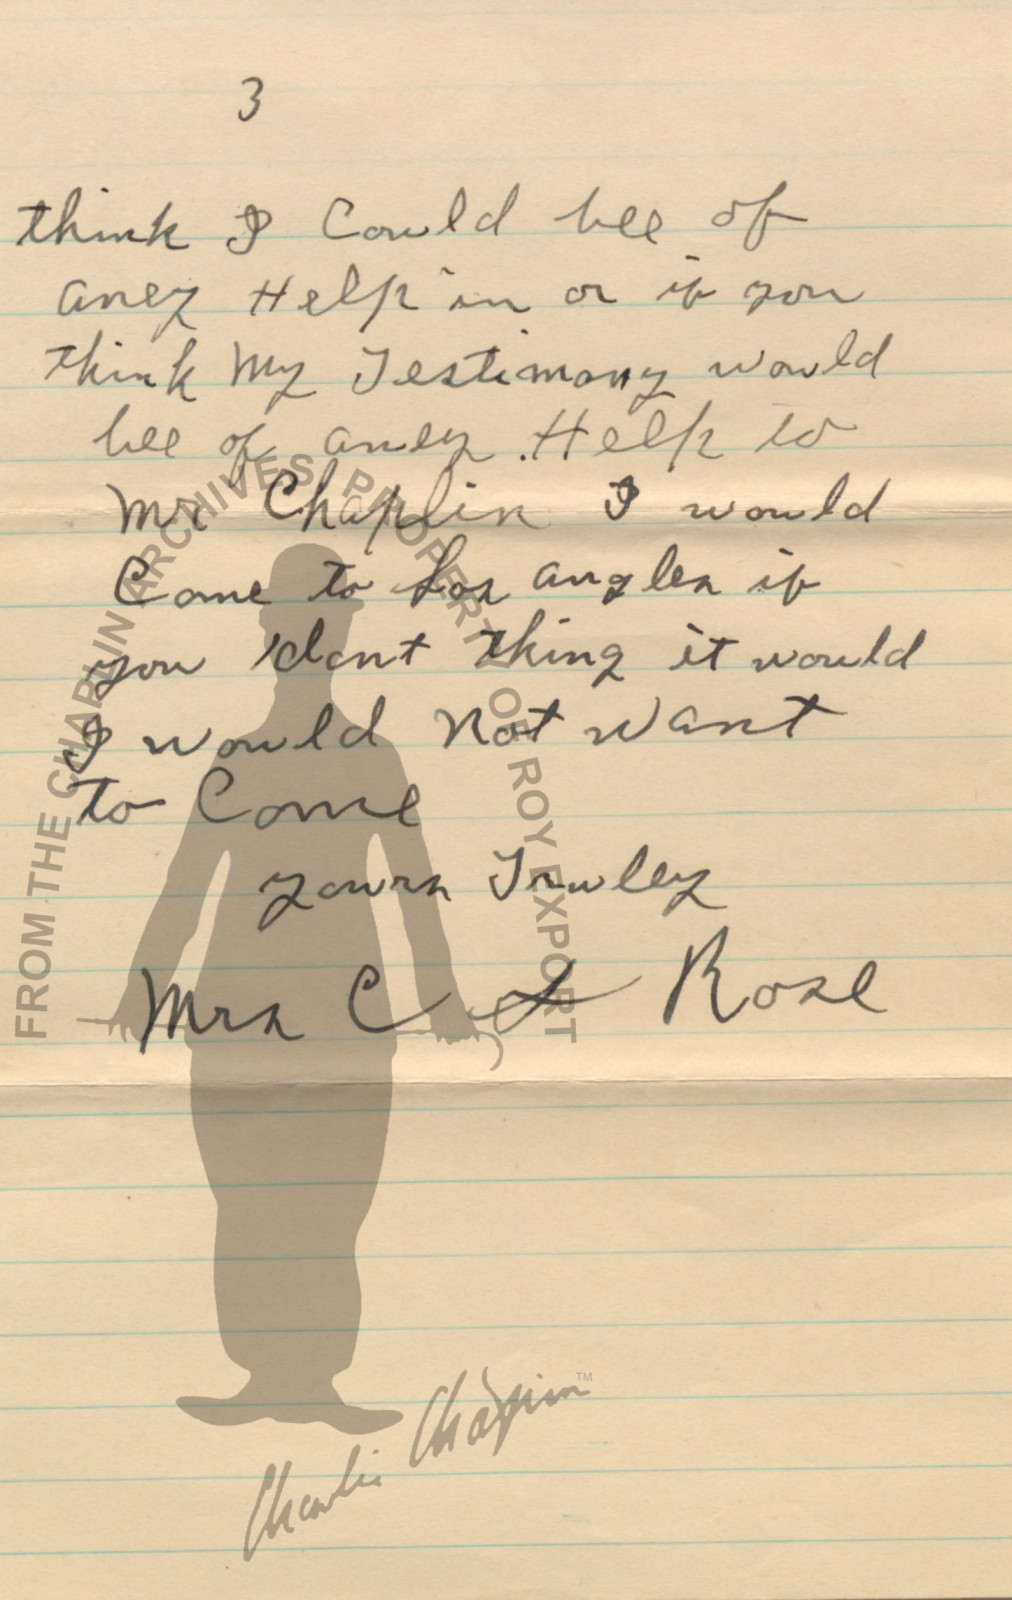 3
think I Could bee of
aney Help in or if you
think My Testimony would
bee of aney Help to
Mr Chaplin I would
Come to Los Angles if
you dont thing it would
I would Not want
to Come
yours Truley
Mrs C L Rose
FROM THE CHAPLIN ARCHIVES PROPERTY OF ROY EXPORT
Charlie Chaplin™